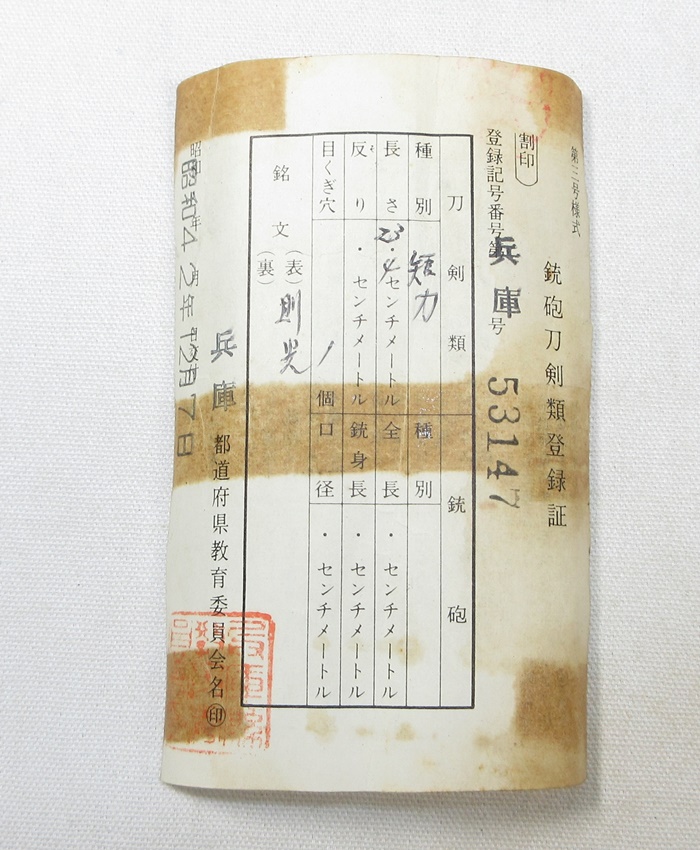 第三号様式
銃砲刀剣類登録証
割印
登録記号番号第兵庫号 53147
刀剣類 銃砲
種別 短刀 種別
長さ 23.4センチメートル 全長 ・センチメートル
反り ・センチメートル 銃身長 ・センチメートル
目くぎ穴 1個 口径 ・センチメートル
銘文 (表) 則光
(裏)
兵庫都道府県教育委員会名㊞
昭和42年12月7日